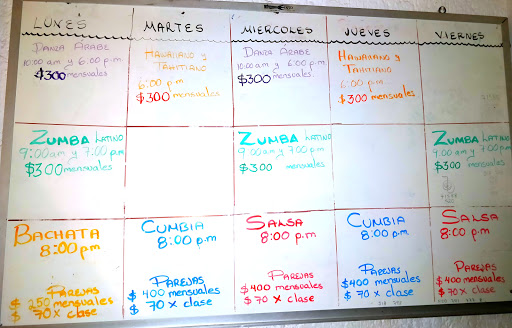 LUNES
MARTES
MIERCOLES
JUEVES
VIERNES
DANZA ARABE
10:00 am y 6:00 p.m
$300 mensuales
HAWAIANO y
TAHITIANO
6:00 p.m
$300 mensuales
DANZA ARABE
10:00 am y 6:00 p.m
$300 mensuales
HAWAIANO y
TAHITIANO
6:00 p.m
$300 mensuales
ZUMBA LATINO
9:00 am y 7:00 p.m
$300 mensuales
ZUMBA LATINO
9:00 am y 7:00 pm
$300 mensuales
ZUMBA LATINO
9:00 am y 7:00 pm
$300 mensuales
BACHATA
8:00 pm
PAREJAS
$ 250 mensuales
$ 70 x clase
CUMBIA
8:00 p.m
PAREJAS
$ 400 mensuales
$ 70 x clase
SALSA
8:00 p.m
PAREJAS
$ 400 mensuales
$ 70 x clase
CUMBIA
8:00 p.m
PAREJAS
$400 mensuales
$ 70 x clase
SALSA
8:00 p.m
PAREJAS
$ 400 mensuales
$ 70 x clase